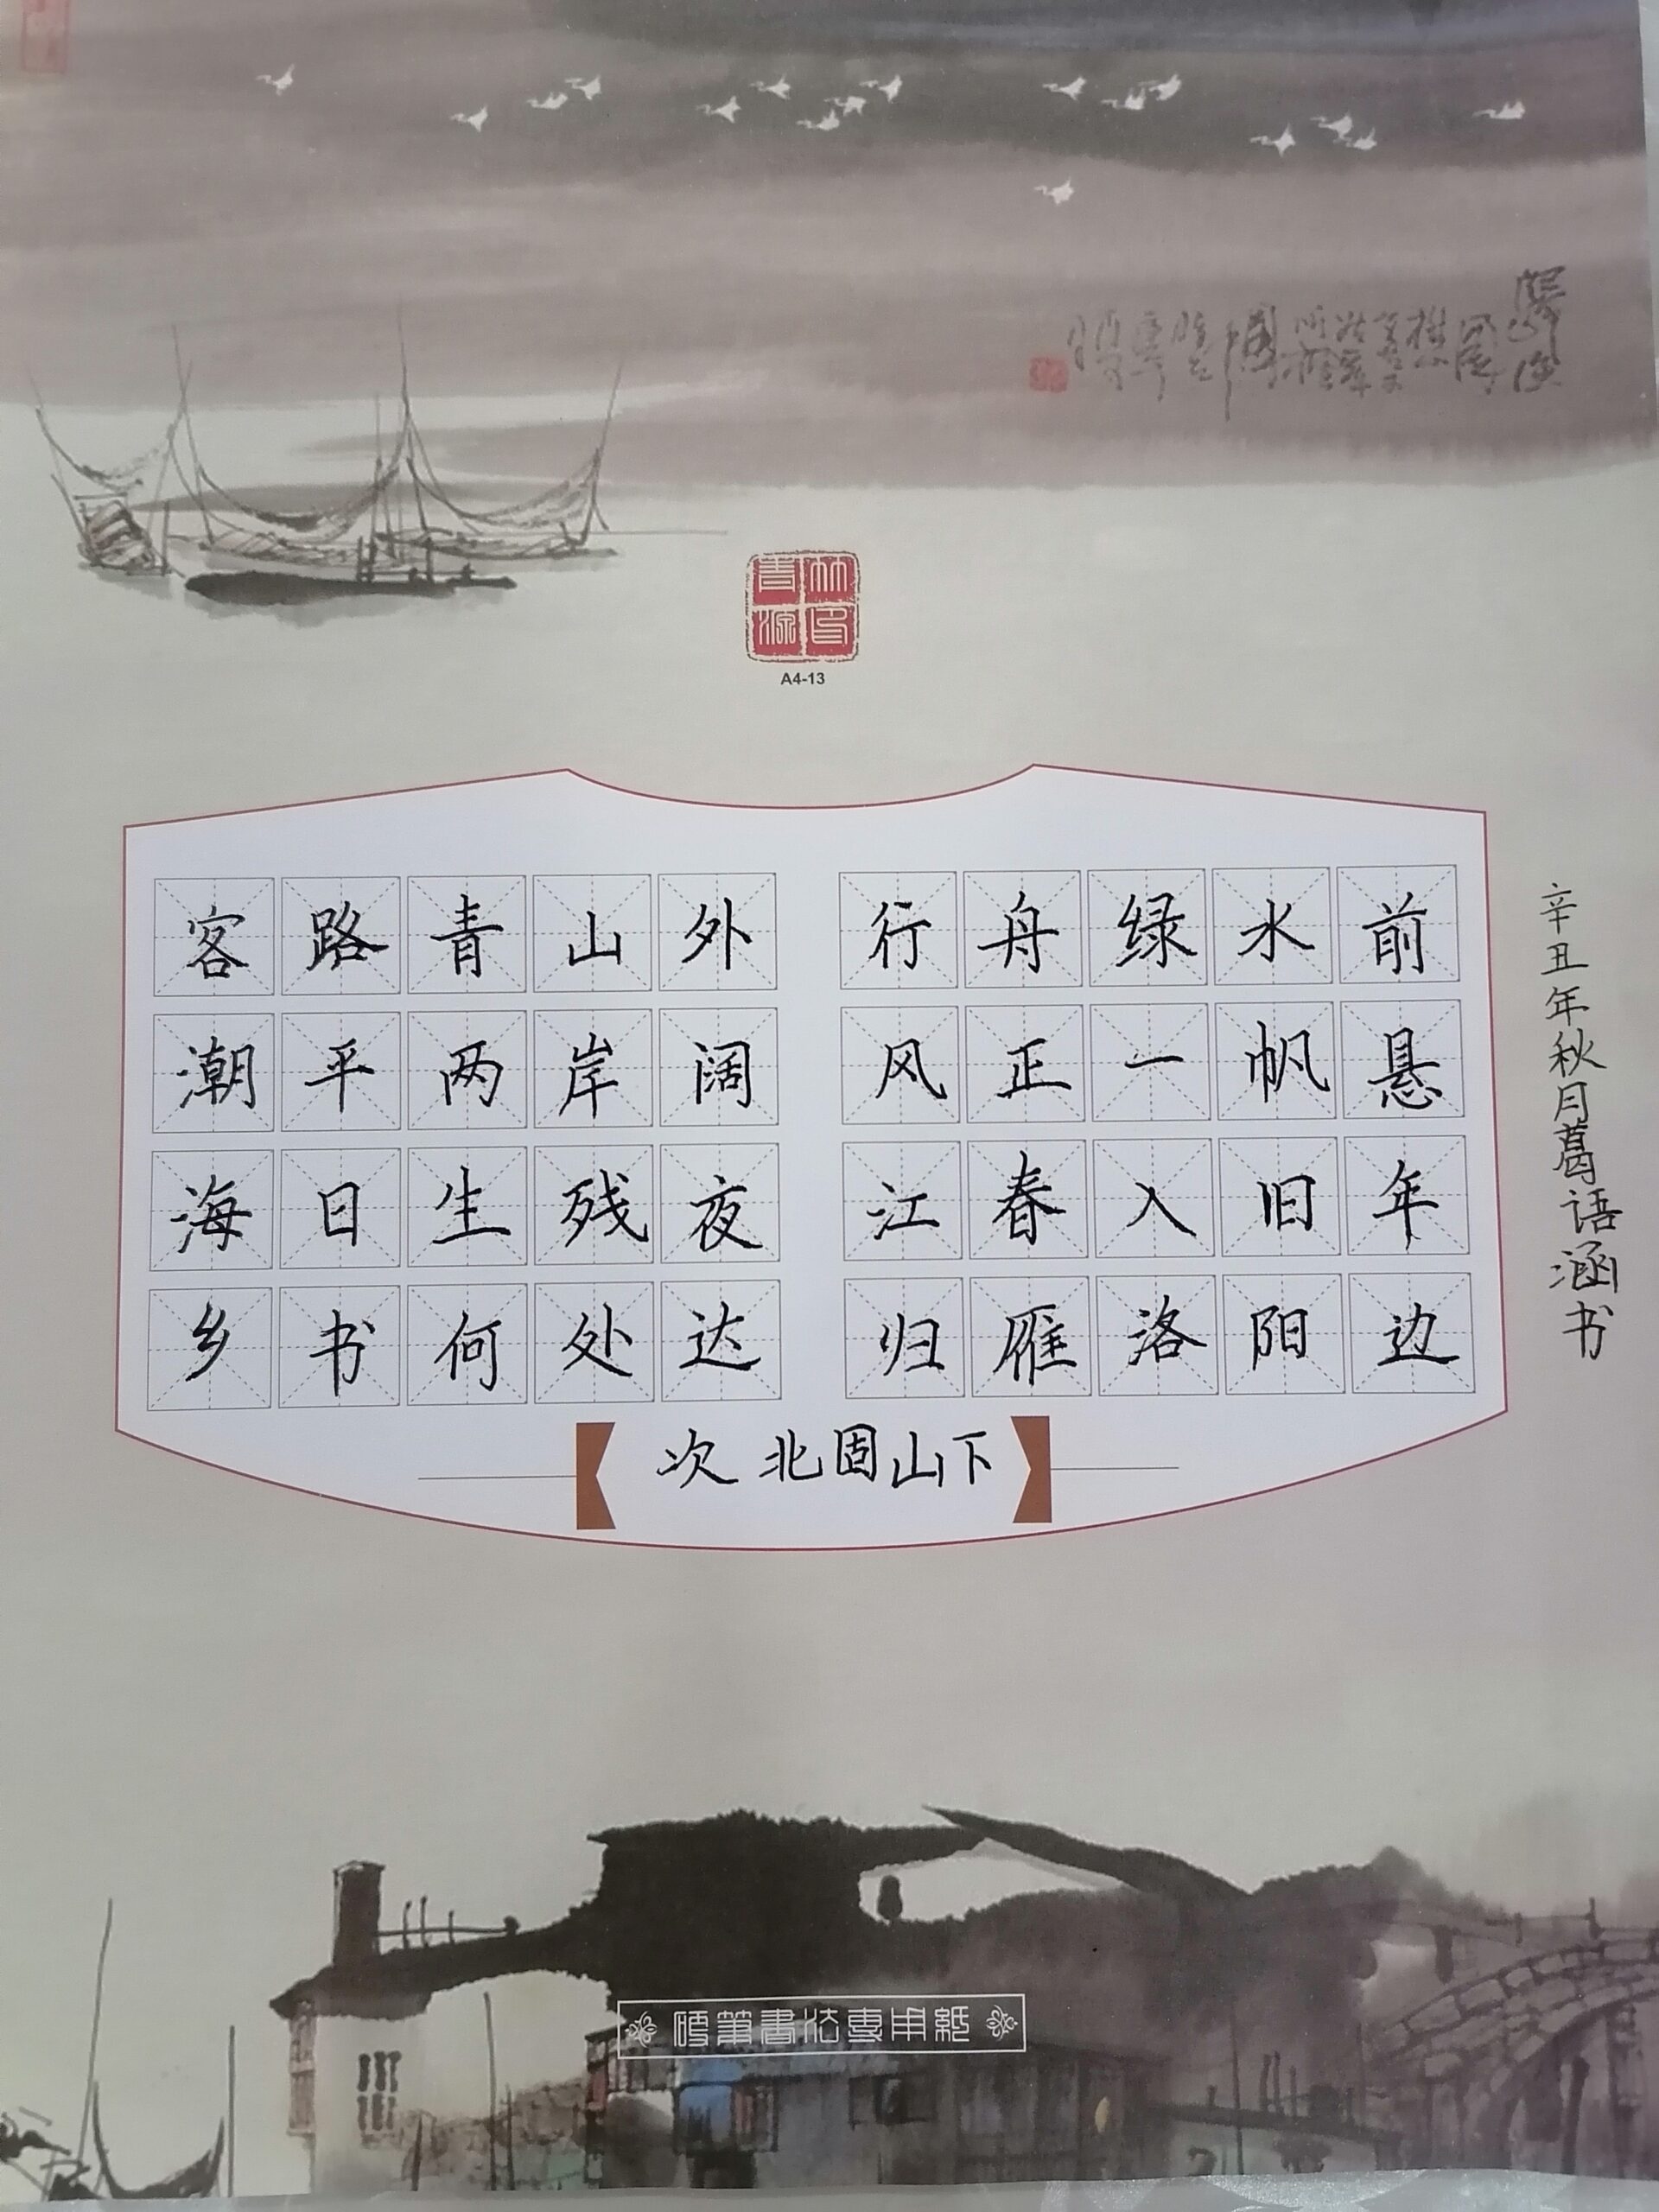 A4-13
客路青山外 行舟绿水前
潮平两岸阔 风正一帆悬
海日生残夜 江春入旧年
乡书何处达 归雁洛阳边
次北固山下
辛丑年秋月葛语涵书
硬筆書法專用紙